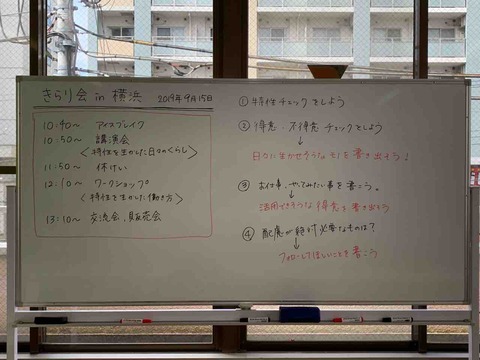 きらり会 in 横浜 2019年9月15日
10:40〜 アイスブレイク
10:50〜 講演会
<特性を生かした日々のくらし>
11:50〜 休けい
12:10〜 ワークショップ
<特性を生かした働き方>
13:10〜 交流会、販売会
① 特性チェックをしよう
② 得意・不得意チェックをしよう
↓
日々に生かせそうなものを書き出そう!
③ お仕事、やってみたい事を書こう。
↓
活用できそうな得意を書き出そう
④ 配慮が絶対必要なものは?
↓
フォローしてほしいことを書こう